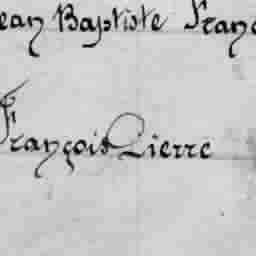 ean Baptiste Franç
François Pierre